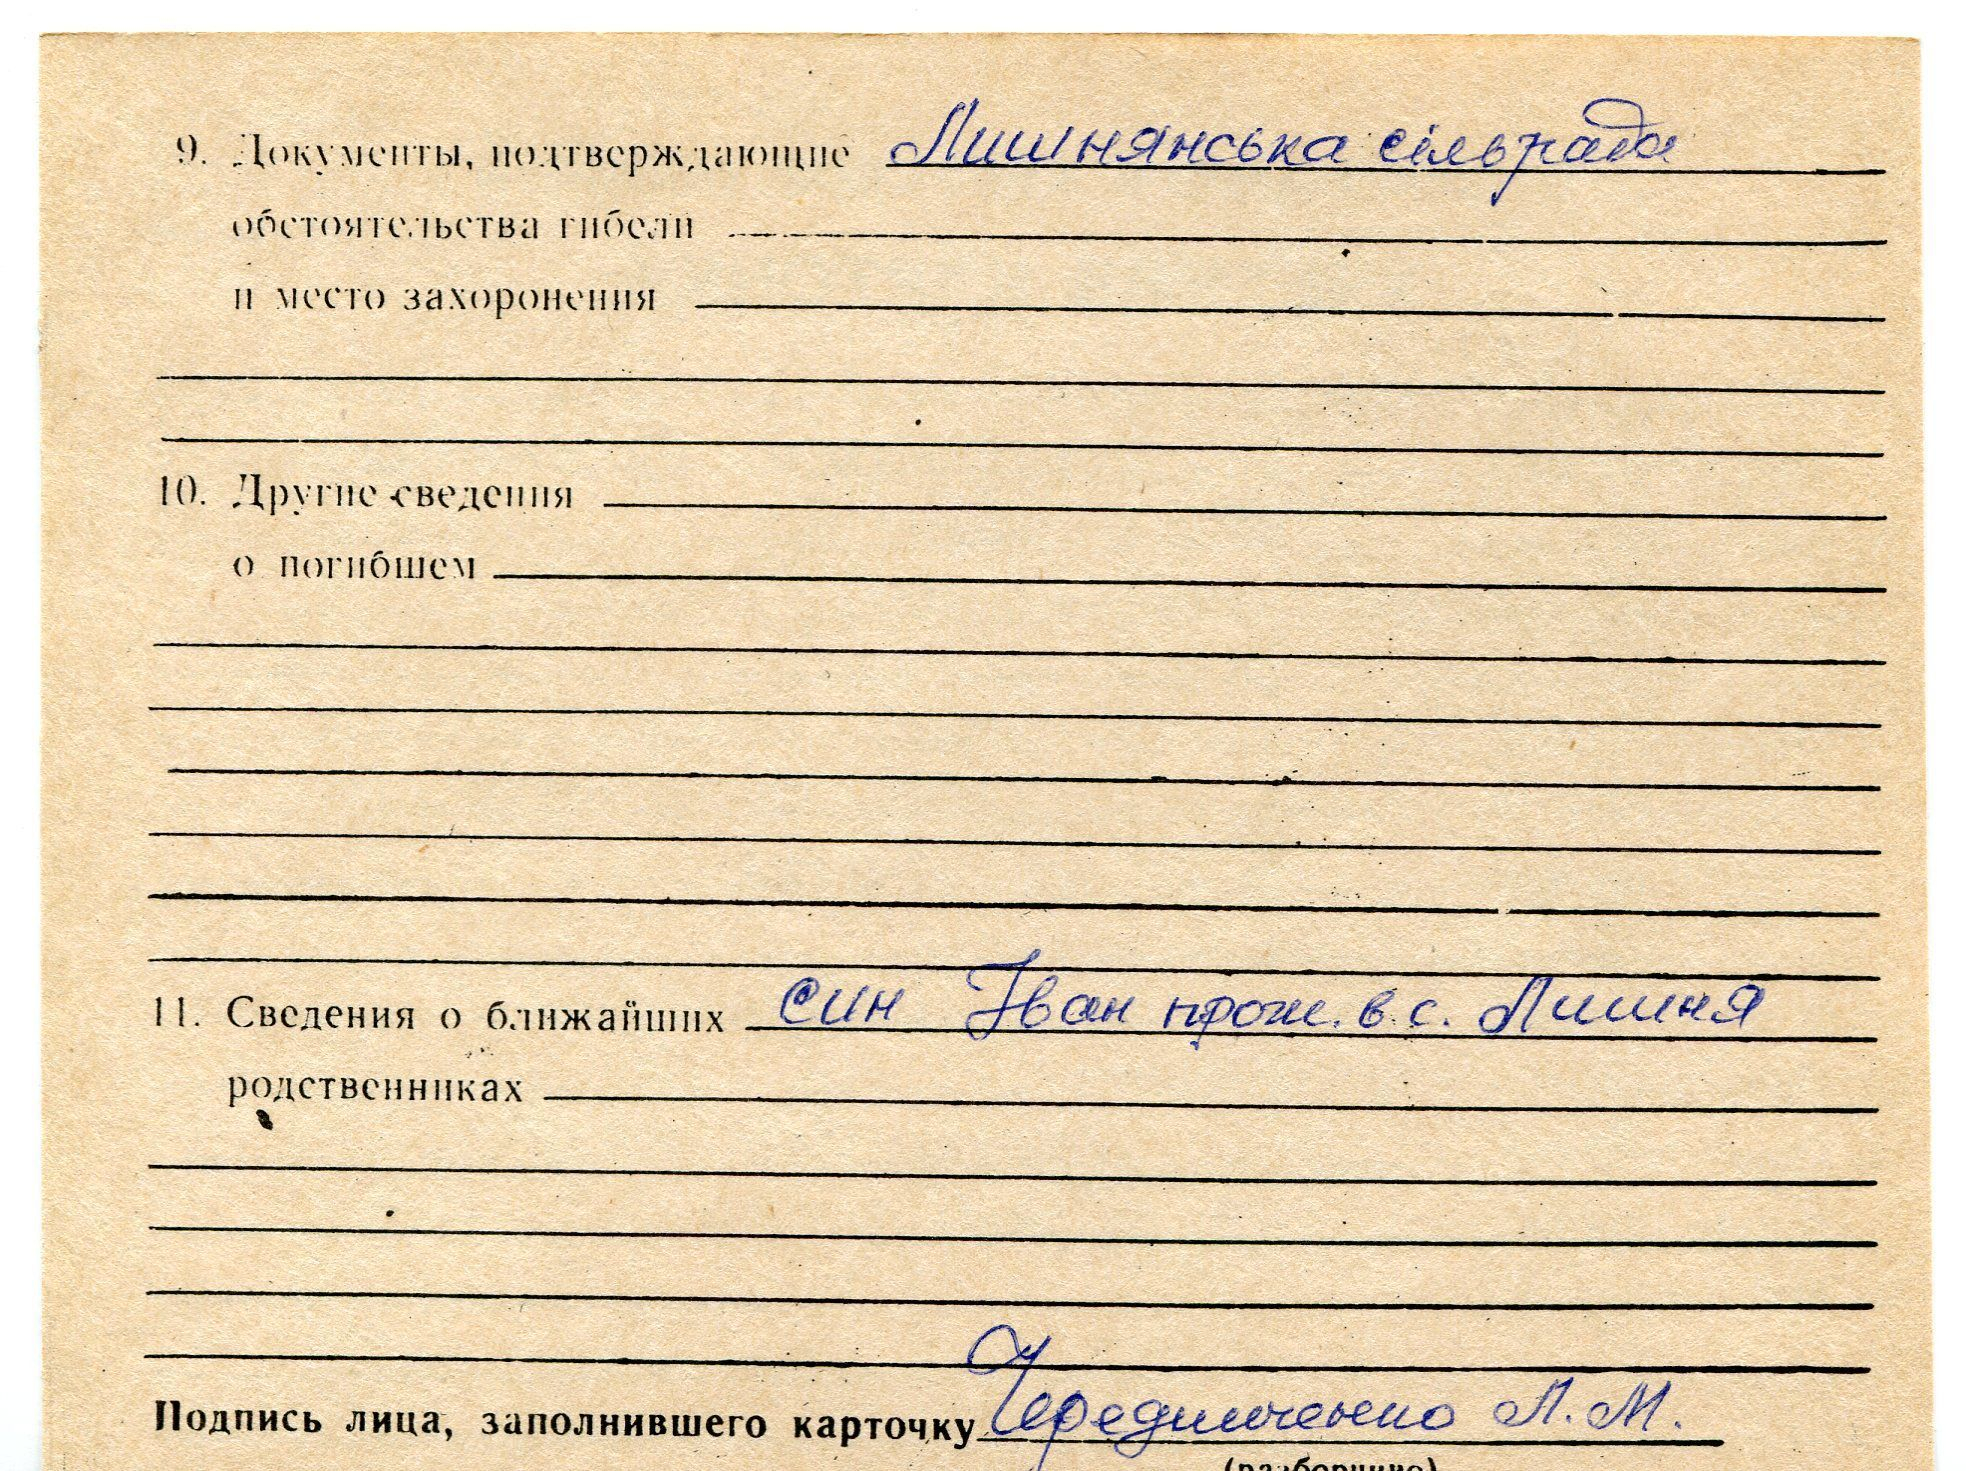 9. Документы, подтверждающие Лишнянська сільрада
обстоятельства гибели
и место захоронения
10. Другие сведения
о погибшем
11. Сведения о ближайших син Іван прож. в с. Лишня
родственниках
Подпись лица, заполнившего карточку Чередниченко Л. М.
(разборчиво)